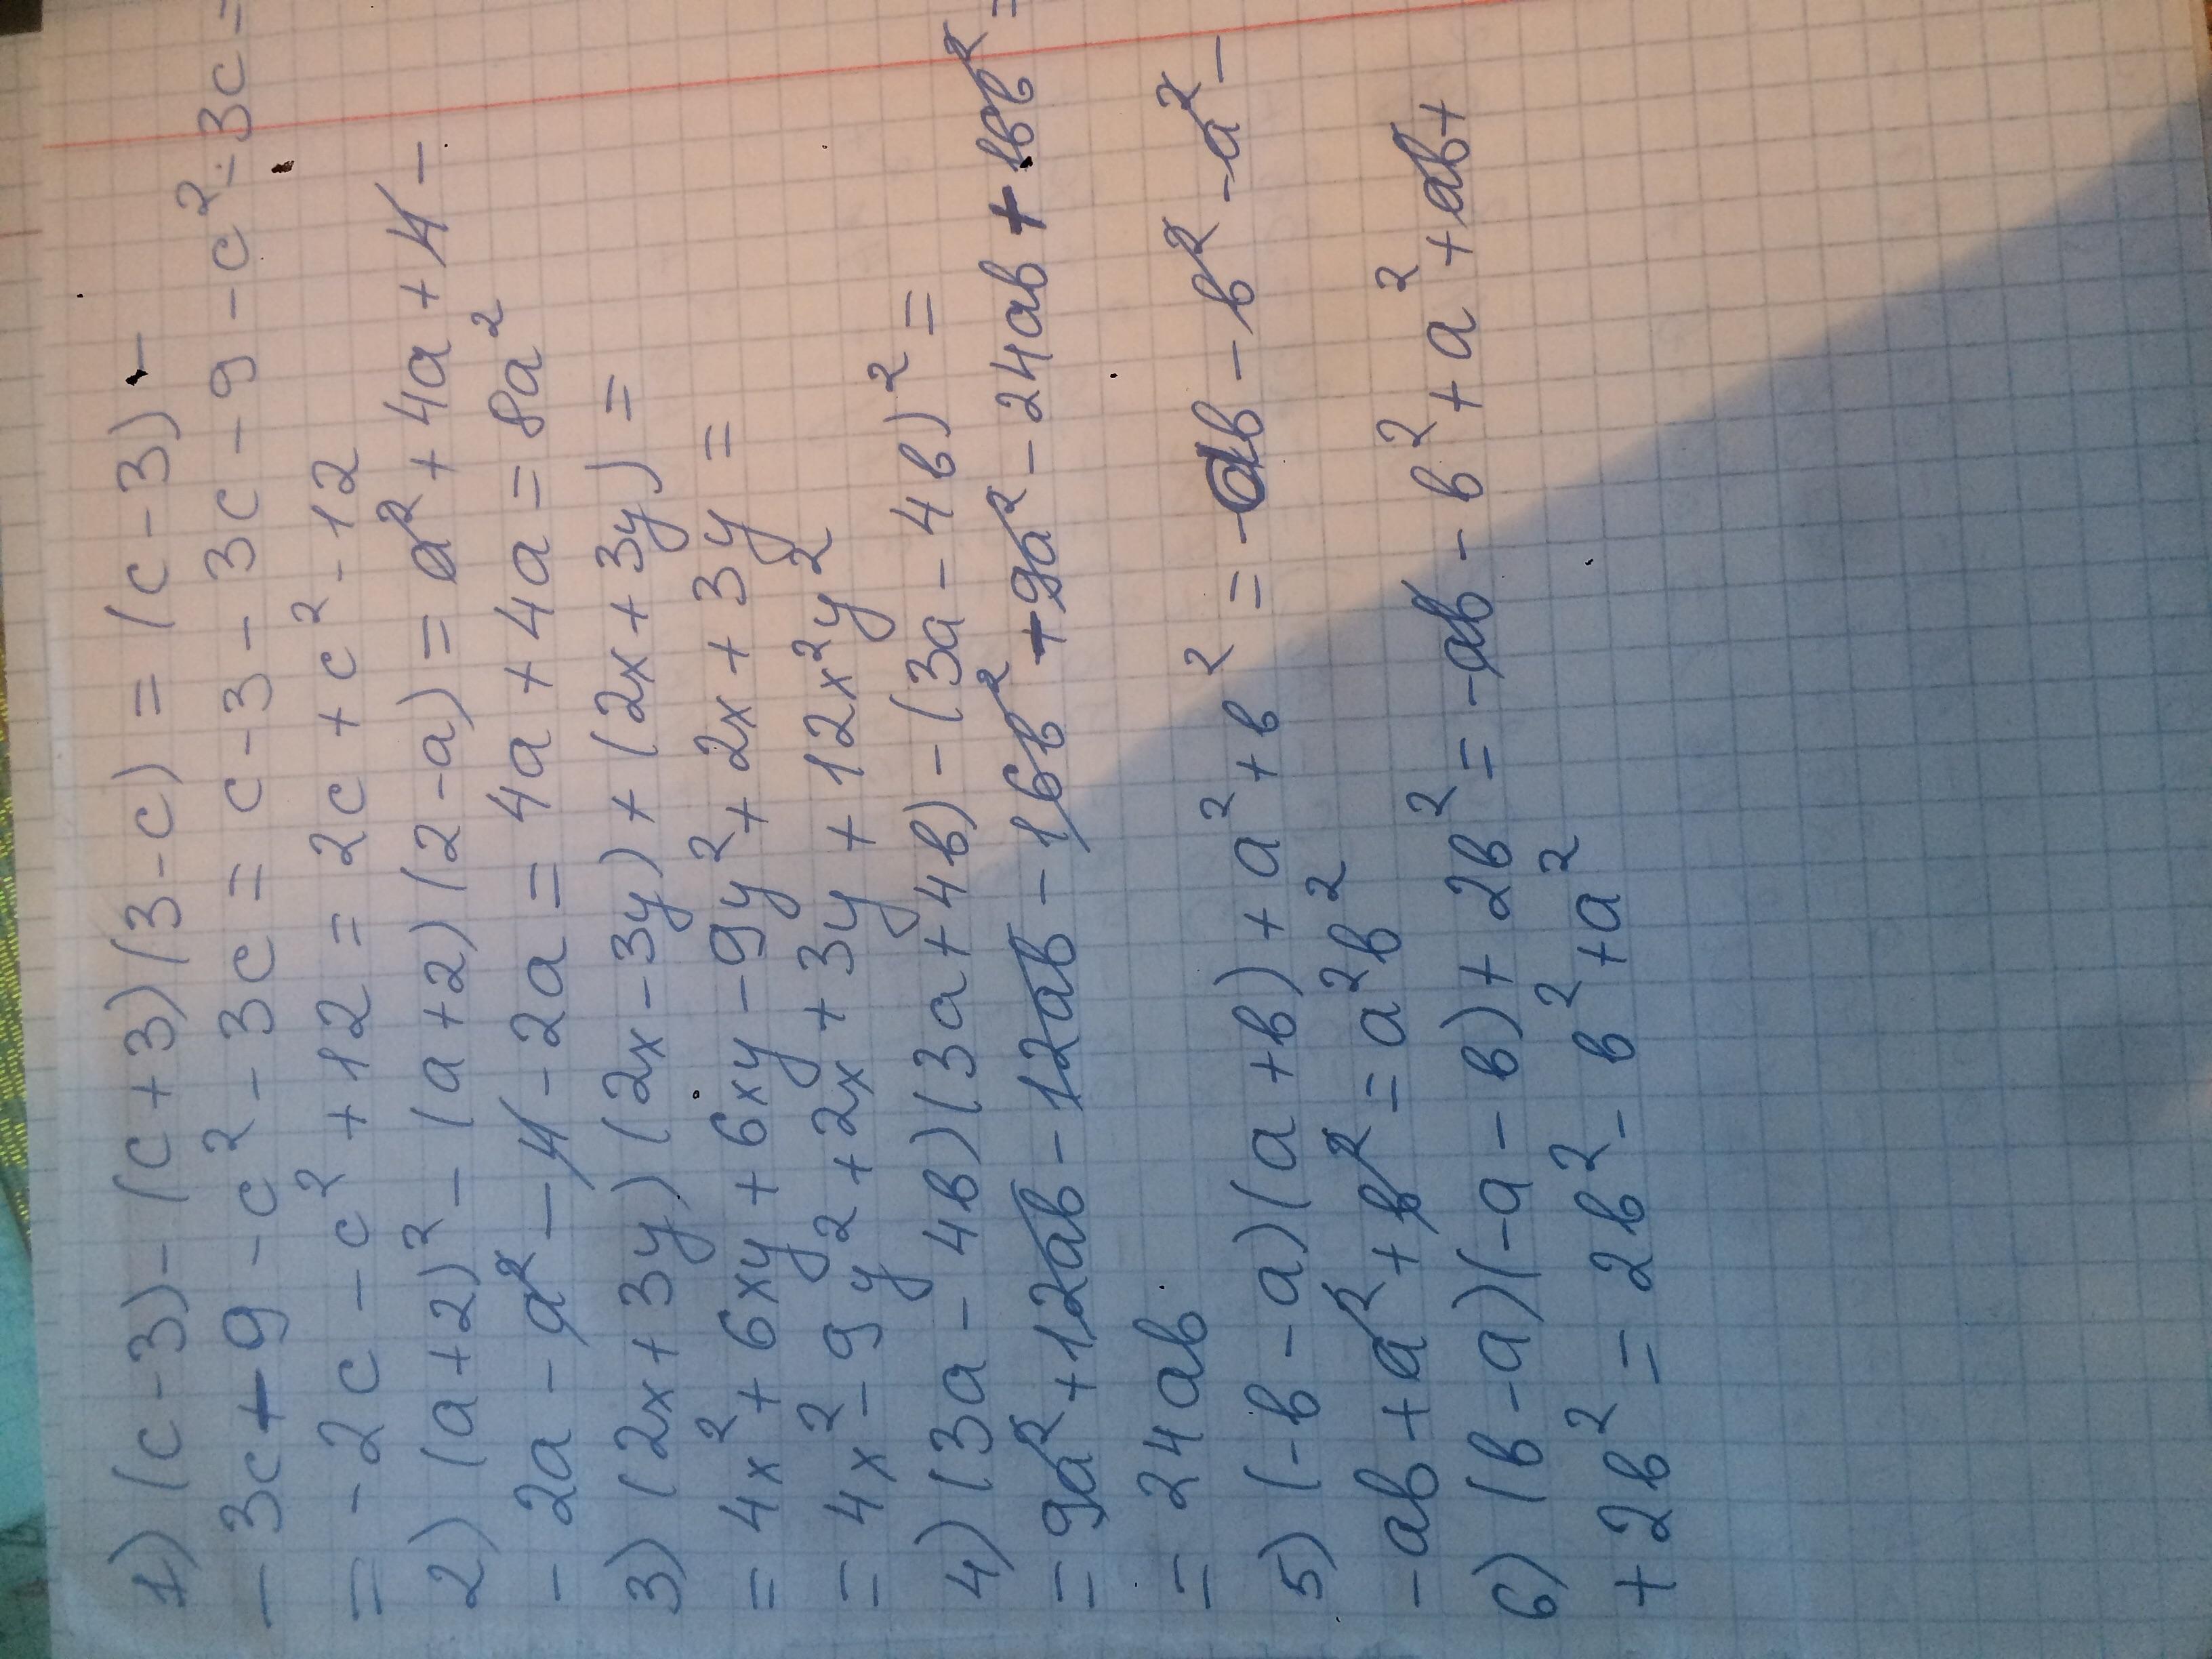 1) (c-3)-(c+3)(3-c) = (c-3)-
-3c+9-c²-3c = c-3-3c-9-c²-3c=
= -2c-c²+12 = 2c+c²-12
2) (a+2)²-(a+2)(2-a) = a²+4a+4-
-2a-a²-4-2a = 4a+4a = 8a²
3) (2x+3y)(2x-3y)+(2x+3y) =
= 4x²+6xy+6xy-9y²+2x+3y =
= 4x²-9y²+2x+3y+12x²y²
4) (3a-4в)(3a+4в)-(3a-4в)² =
= 9a²+12aв-12aв-16в²+9a²-24aв+16в²=
= 24aв
5) (-в-a)(a+в)+a²+в² = -aв-в²-a²-
-aв+a²+в² = a²в²
6) (в-a)(-a-в)+2в² = -aв-в²+a²+aв+
+2в² = 2в²-в²+a²